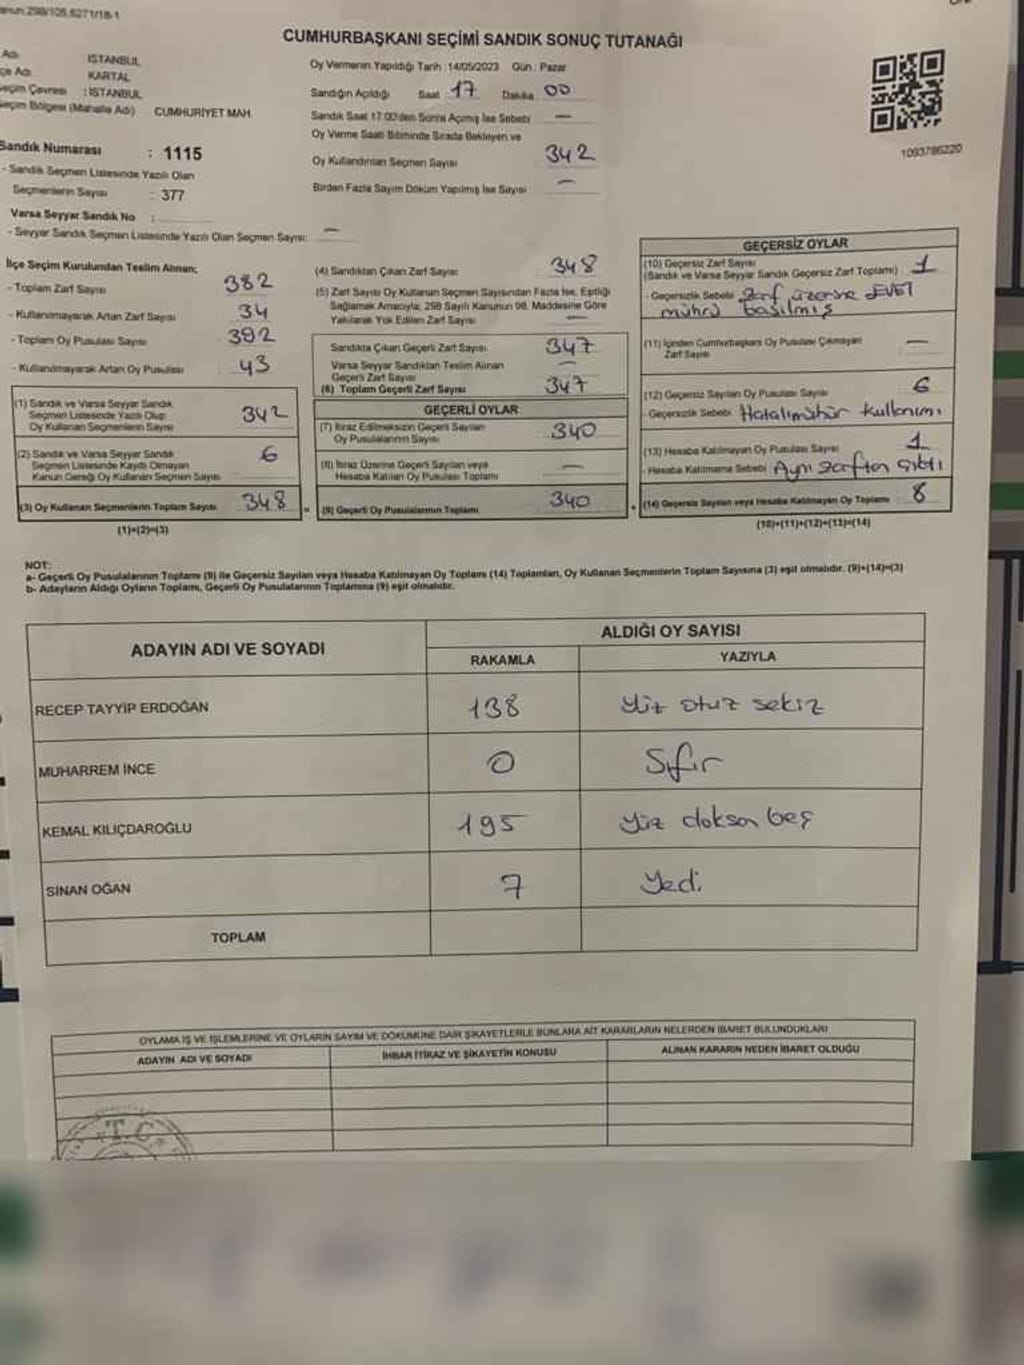 CUMHURBAŞKANI SEÇİMİ SANDIK SONUÇ TUTANAĞI
Adı İSTANBUL
çe Adı KARTAL
eçim Çevresi : İSTANBUL
eçim Bölgesi (Mahalle Adı) CUMHURİYET MAH.
Sandık Numarası : 1115
- Sandık Seçmen Listesinde Yazılı Olan
Seçmenlerin Sayısı : 377
Varsa Seyyar Sandık No :
- Seyyar Sandık Seçmen Listesinde Yazılı Olan Seçmen Sayısı: —
Oy Vermenin Yapıldığı Tarih : 14/05/2023 Gün : Pazar
Sandığın Açıldığı Saat 17 Dakika 00
Sandık Saat 17:00'den Sonra Açımış İse Sebebi —
Oy Verme Saati Bitiminde Sırada Bekleyen ve
Oy Kullandırılan Seçmen Sayısı 342
Birden Fazla Sayım Döküm Yapılmış İse Sayısı —
1093786220
İlçe Seçim Kurulundan Teslim Alınan;
- Toplam Zarf Sayısı 382
- Kullanılmayarak Artan Zarf Sayısı 34
- Toplam Oy Pusulası Sayısı 392
- Kullanılmayarak Artan Oy Pusulası 43
(1) Sandık ve Varsa Seyyar Sandık
Seçmen Listesinde Yazılı Olup
Oy Kullanan Seçmenlerin Sayısı 342
(2) Sandık ve Varsa Seyyar Sandık
Seçmen Listesinde Kaydı Olmayan
Kanun Gereği Oy Kullanan Seçmen Sayısı 6
(3) Oy Kullanan Seçmenlerin Toplam Sayısı 348
(1)+(2)=(3)
(4) Sandıktan Çıkan Zarf Sayısı 348
(5) Zarf Sayısı Oy Kullanan Seçmen Sayısından Fazla İse, Eşitliği
Sağlamak Amacıyla, 298 Sayılı Kanunun 98. Maddesine Göre
Yakılarak Yok Edilen Zarf Sayısı —
Sandıkta Çıkan Geçerli Zarf Sayısı 347
Varsa Seyyar Sandıktan Teslim Alınan
Geçerli Zarf Sayısı —
(6) Toplam Geçerli Zarf Sayısı 347
GEÇERLİ OYLAR
(7) İtiraz Edilmeksizin Geçerli Sayılan
Oy Pusulalarının Sayısı 340
(8) İtiraz Üzerine Geçerli Sayılan veya
Hesaba Katılan Oy Pusulası Toplamı —
(9) Geçerli Oy Pusulalarının Toplamı 340
GEÇERSİZ OYLAR
(10) Geçersiz Zarf Sayısı
(Sandık ve Varsa Seyyar Sandık Geçersiz Zarf Toplamı) 1
- Geçersizlik Sebebi Zarf üzerine EVET
mührü basılmış
(11) İçinden Cumhurbaşkanı Oy Pusulası Çıkmayan
Zarf Sayısı —
(12) Geçersiz Sayılan Oy Pusulası Sayısı 6
- Geçersizlik Sebebi Hatalı mühür kullanımı
(13) Hesaba Katılmayan Oy Pusulası Sayısı 1
- Hesaba Katılmama Sebebi Aynı zarftan çıktı
(14) Geçersiz Sayılan veya Hesaba Katılmayan Oy Toplamı 8
(10)+(11)+(12)+(13)=(14)
NOT:
a- Geçerli Oy Pusulalarının Toplamı (9) ile Geçersiz Sayılan veya Hesaba Katılmayan Oy Toplamı (14) Toplamları, Oy Kullanan Seçmenlerin Toplam Sayısına (3) eşit olmalıdır. (9)+(14)=(3)
b- Adayların Aldığı Oyların Toplamı, Geçerli Oy Pusulalarının Toplamına (9) eşit olmalıdır.
ADAYIN ADI VE SOYADI
ALDIĞI OY SAYISI
RAKAMLA YAZIYLA
RECEP TAYYİP ERDOĞAN 138 Yüz otuz sekiz
MUHARREM İNCE 0 Sıfır
KEMAL KILIÇDAROĞLU 195 Yüz doksan beş
SİNAN OĞAN 7 Yedi
TOPLAM
OYLAMA İŞ VE İŞLEMLERİNE VE OYLARIN SAYIM VE DÖKÜMÜNE DAİR ŞİKAYETLERLE BUNLARA AİT KARARLARIN NELERDEN İBARET BULUNDUKLARI
ADAYIN ADI VE SOYADI İHBAR İTİRAZ VE ŞİKAYETİN KONUSU ALINAN KARARIN NEDEN İBARET OLDUĞU
T.C.